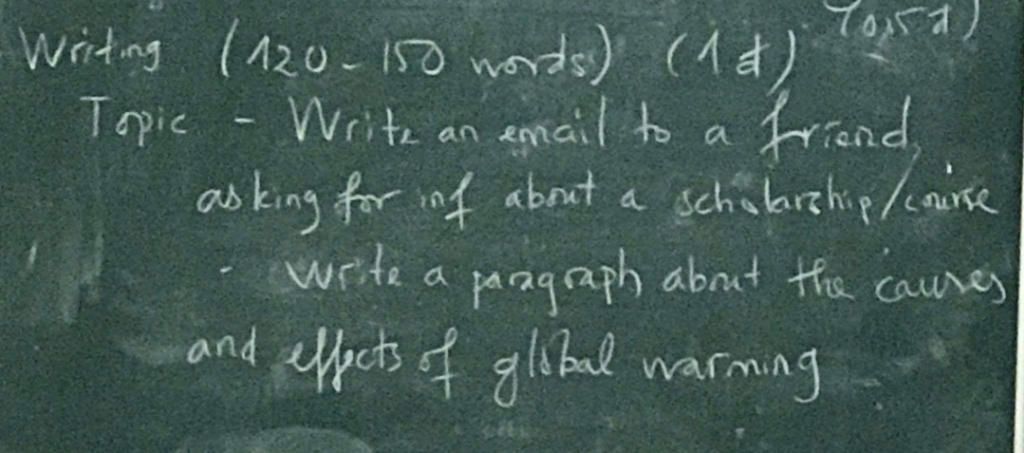 Writing (120 - 150 words) (1đ)
Topic - Write an email to a friend,
asking for inf about a scholarship/course
- Write a paragraph about the causes
and effects of global warming